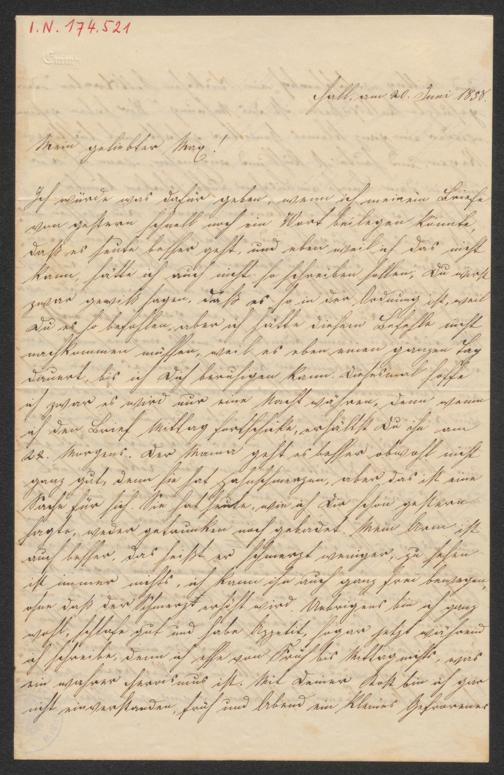 I.N. 174.521
Hall, am 20. Juni 1858.
Mein geliebter Max!
Ich würde was dafür geben, wenn ich meinem Briefe
von gestern schnell noch ein Wort beilegen könnte
daß es heute besser geht, und eben weil ich das nicht
kann, hätte ich auch nicht so schreiben sollen, Du wirst
zwar gewiß sagen, daß es so in der Ordnung ist, weil
Du es so befohlen, aber ich hätte diesem Befehle nicht
nachkommen müssen, weil es eben einen ganzen Tag
dauert, bis ich Dich beruhigen kann. Diesmal hoffe
ich zwar es wird nur eine Nacht währen, denn wenn
ich den Brief Mittag fortschicke, erhältst Du ihn am
Morgens. Der Mama geht es besser obwohl nicht
ganz gut, denn sie hat Zahnschmerzen, aber das ist eine
Sache für sich. Sie hat heute, wie ich Dir schon gestern
sagte, weder getrunken noch gebadet. Mein Arm ist
auch besser, das heißt er schmerzt weniger, zu sehen
ist immer nichts, ich kann ihn auch ganz frei bewegen,
ohne daß der Schmerz erhöht wird. Uebrigens bin ich ganz
wohl, schlafe gut und habe Appetit, sogar jetzt während
ich schreibe, denn ich esse von Früh bis Mittag nichts, was
ein wahrer Heroismus ist. Mit Deiner Kost bin ich gar
nicht einverstanden, früh und Abend ein kleines Gefrorenes